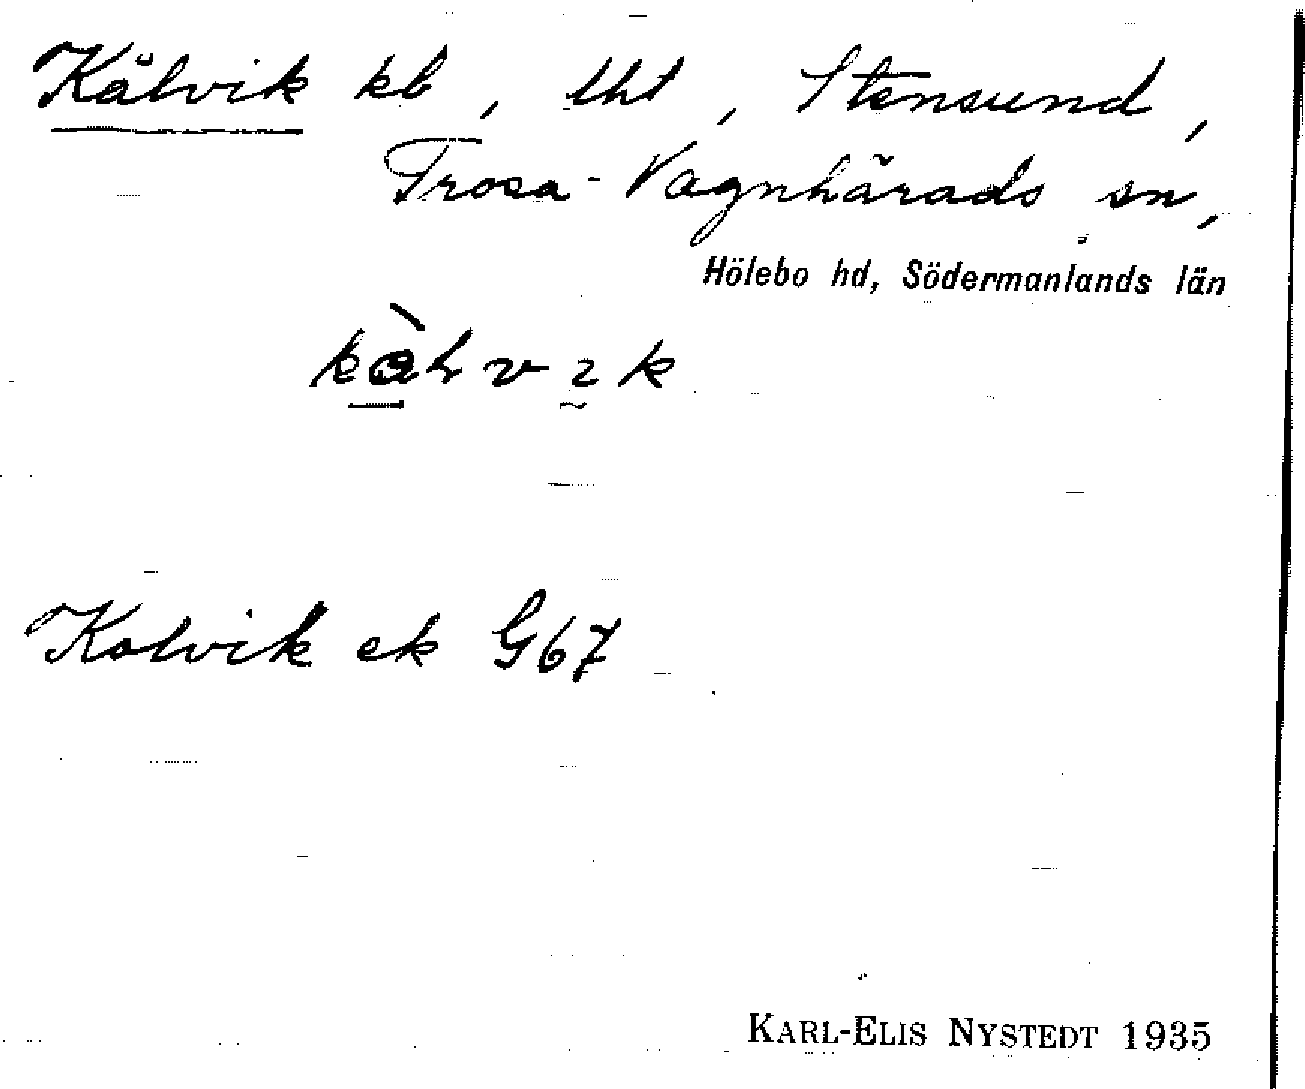 Kålvik kb, lht, Stensund,
Trosa-Vagnhärads sn,
Hölebo hd, Södermanlands län
Kolvik ek G67
KARL-ELIS NYSTEDT 1935